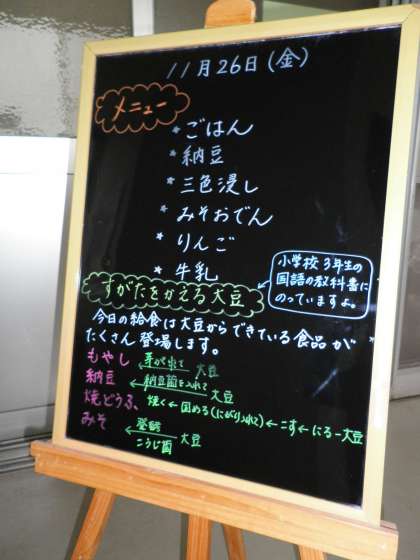 11月26日(金)
メニュー
*ごはん
*納豆
*三色浸し
*みそおでん
*りんご
*牛乳
すがたをかえる大豆
小学校3年生の
国語の教科書に
のっていますよ。
今日の給食は大豆からできている食品が
たくさん登場します。
もやし ← 芽が出て 大豆
納豆 ← 納豆菌を入れて 大豆
焼どうふ、焼く ← 固める(にがり入れて) ← こす ← にる ー 大豆
みそ ← 発酵 こうじ菌 大豆